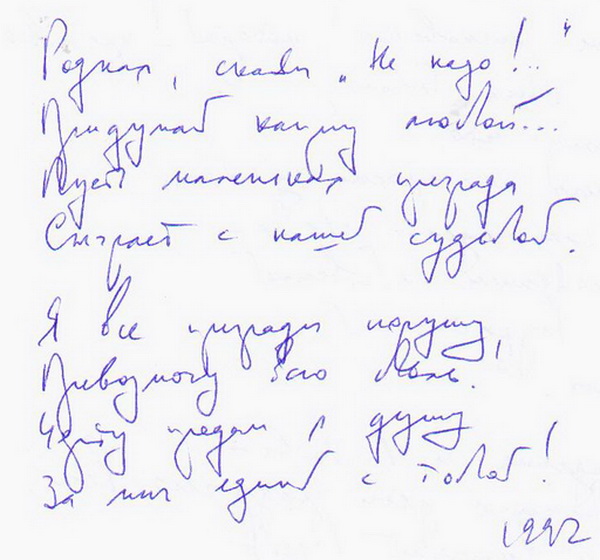 Родная, скажи „Не надо!.."
Придумай казнь любой...
Пусть маленькая преграда
Сыграет с нашей судьбой.
Я все преграды порушу,
Превозмогу всю боль.
Черту предам я душу
За миг единый с тобой!
1992